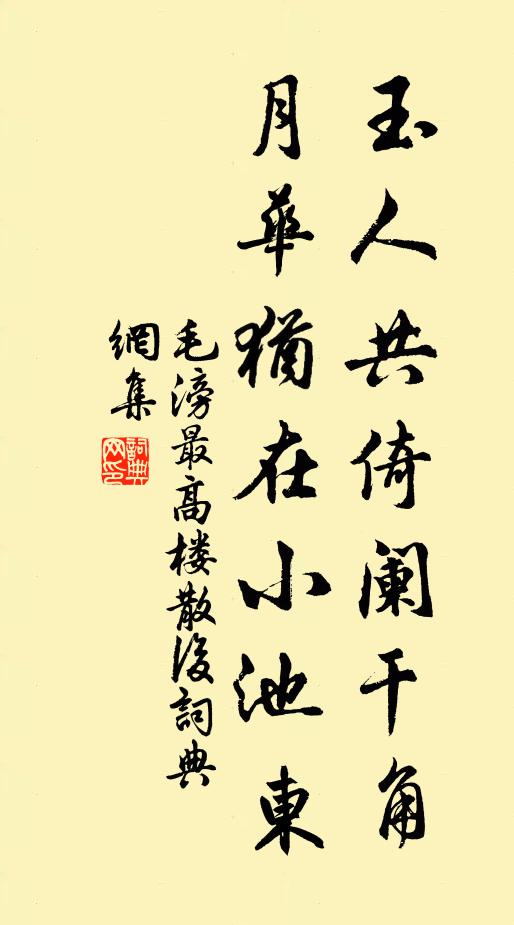 玉人共倚阑干角
月華猶在小池東
毛滂最高楼散後詞典
網集
詞典网印